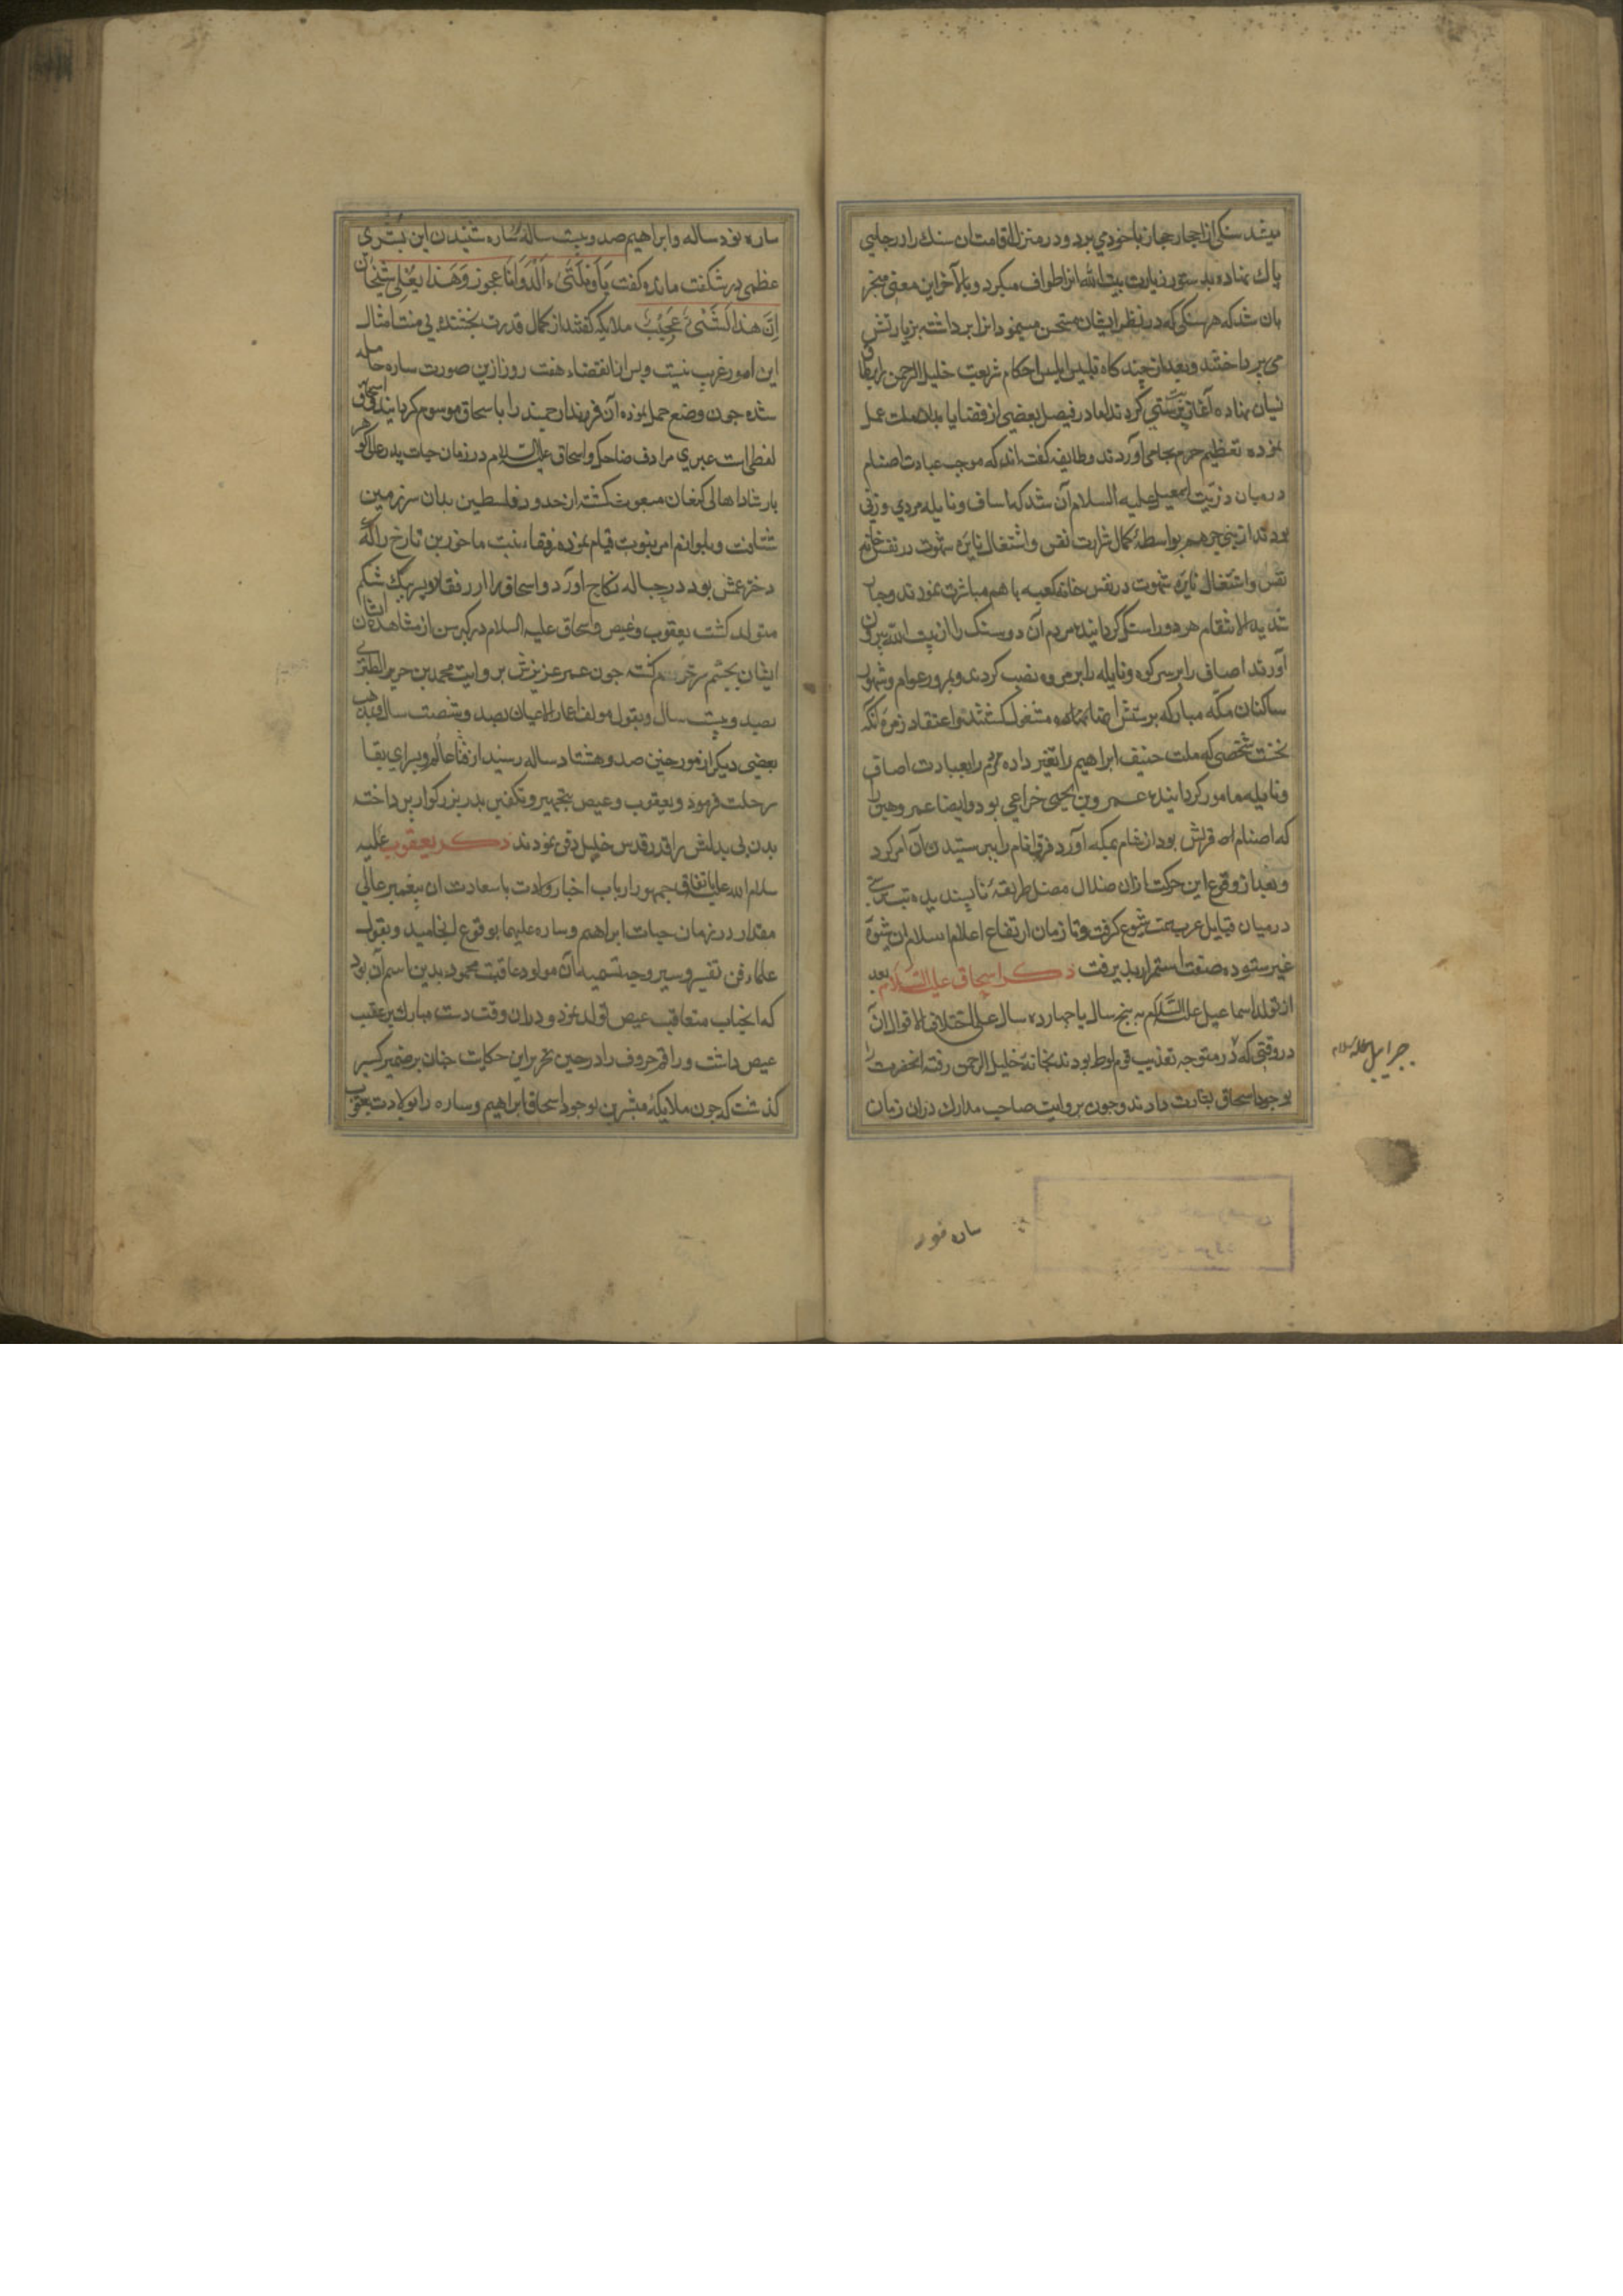 میشد سنکی از احجار حجاز با خود می برد و در منزل اقامت ان سنك را در جایی
پاك نهاده بدستور زیارت بیت الله انرا طواف میکرد و بالآخر این معنی منجر
بان شد که هر سنکی که در نظر ایشان مستحسن مینمود انرا برداشته بزیارتش
می پرداختند و بعد از چند کاه تلبیس ابلیس احکام شریعت خلیل الرحمن را بطاق
نسیان نهاده آغاز بت پرستی کردند اما در فیصل بعضی از قضایا بدان ملت عمل
نموده تعظیم حرم بجا می آوردند و طایفه کفته اند که موجب عبادت اصنام
در میان ذریت اسمعیل علیه السلام آن شد که اساف و نایله مردی و زنی
بودند از بنی جرهم بواسطهٔ کمال شرارت نفس و اشتغال نایره شهوت در نفس خانه
نفس و اشتغال نایره شهوت در نفس خانه کعبه با هم مباشرت نمودند و جناب
شدید الانتقام هر دو را سنك کردانیده مردم آن دو سنك را از بیت الله بیرون
آوردند اصاف را بر سر کوه و نایله را بر مروه نصب کردند و بمرور عوام و شهور
ساکنان مکه مبارکه بپرستش اصنام مشغول کشتند و اعتقاد زمره انکه
نخست شخصی که ملت حنیف ابراهیم را تغییر داده مردم را بعبادت اصاف
و نایله مامور کردانیده عمرو بن لحیی خزاعی بود و ایضا عمرو هبل را
که اصنام اهل قریش بود از شام بمکه آورد فرق انام را بپرستیدن آن امر کرد
و بعد از وقوع این حرکت ازان ضلال مضل طریقهٔ ناپسندیده بت پرستی
در میان قبایل عرب سمت شیوع کرفت و تا زمان ارتفاع اعلام اسلام این شیوه
غیر ستوده صفت استمرار پذیرفت ذکر اسحاق علیه السلام بعد
از تولد اسماعیل علیه السلام به پنج سال یا چهارده سال علی اختلاف الاقوال ان
در وقتی که در متوجه تعذیب قوم لوط بودند بخانهٔ خلیل الرحمن رفته انحضرت را
بوجود اسحاق بشارت دادند و چون بروایت صاحب مدارك دران زمان
جبرائیل علیه السلام
ساره نود
ساره نود ساله و ابراهیم صد و بیست ساله ساره شنیدن این بشری
عظمی در شکفت مانده کفت یَا وَیْلَتَیٰ ءَاَلِدُ وَاَنَا عَجوز وَهَذا بَعْلِی شَیْخًا
اِنَّ هذا لَشَیْئٌ عَجِیْبٌ ملایکه کفتند از کمال قدرت بخشنده بی منت امثال
این امور غریب نیست و پس از انقضاء هفت روز ازین صورت ساره حامله
شده چون وضع حمل نموده آن فرزندان جمند را باسحاق موسوم کردانیدند و اسحاق
لفظی است عبری مرادف ضاحك و اسحاق علیه السلام در زمان حیات پدر عالی کوهر
بارشاد اهالی کنعان مبعوث کشته از حدود فلسطین بدان سرزمین
شتافت و بلوازم امر نبوت قیام نموده رفقا بنت ماخور بن تارخ را که
دختر عمش بود در حباله نکاح اورد و اسحاق را از رفقا دو پسر بیك شکم
متولد کشت یعقوب و عیص و اسحاق علیه السلام در کبر سن از مشاهده ان
ایشان بچشم سر کشته چون عمر عزیزش بروایت محمد بن جریر الطبری
بصد و بیست سال و بقول مولف اعمار الاعیان بصد و شصت سال و بمذهب
بعضی دیکر از مورخین صد و هشتاد ساله رسید از فنا عالم و سرای بقا
رحلت فرمود و یعقوب و عیص بتجهیز و تکفین پدر بزرکوار پرداخته
بدن بی بدلش را در قدس خلیل دفن نمودند ذکر یعقوب علیه
سلام الله علیه باتفاق جمهور ارباب اخبار ولادت با سعادت ان پیغمبر عالی
مقدار در زمان حیات ابراهیم و ساره علیهما بوقوع انجامید و بقول
علماء فن تفسیر و سیر وجه تسمیه آن مولود عاقبت محمود بدین اسم آن بود
که انجناب متعاقب عیص تولد نمود و دران وقت دست مبارك بر عقب
عیص داشت و راقم حروف را در حین تحریر این حکایت چنان بر ضمیر کسیر
کذشت که چون ملایکهٔ مبشرین بوجود اسحاق ابراهیم و ساره را بولادت یعقوب